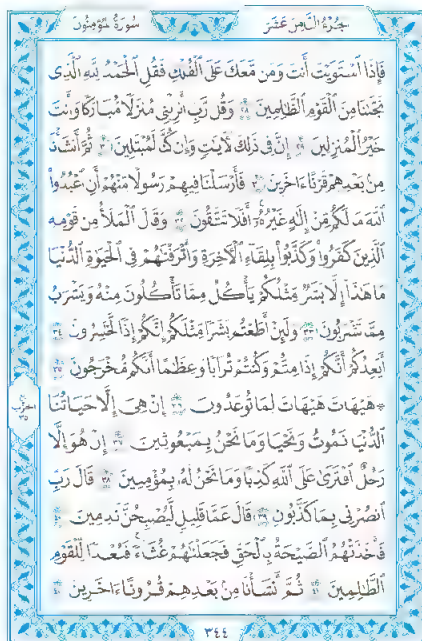 سُورَةُ الْمُؤْمِنُونَ
الجُزْءُ الثَّامِنَ عَشَرَ
فَإِذَا ٱسْتَوَيْتَ أَنتَ وَمَن مَّعَكَ عَلَى ٱلْفُلْكِ فَقُلِ ٱلْحَمْدُ لِلَّهِ ٱلَّذِى
نَجَّىٰنَا مِنَ ٱلْقَوْمِ ٱلظَّٰلِمِينَ ٢٨ وَقُل رَّبِّ أَنزِلْنِى مُنزَلًا مُّبَارَكًا وَأَنتَ
خَيْرُ ٱلْمُنزِلِينَ ٢٩ إِنَّ فِى ذَٰلِكَ لَءَايَٰتٍ وَإِن كُنَّا لَمُبْتَلِينَ ٣٠ ثُمَّ أَنشَأْنَا
مِنۢ بَعْدِهِمْ قَرْنًا ءَاخَرِينَ ٣١ فَأَرْسَلْنَا فِيهِمْ رَسُولًا مِّنْهُمْ أَنِ ٱعْبُدُوا۟
ٱللَّهَ مَا لَكُم مِّنْ إِلَٰهٍ غَيْرُهُۥٓ أَفَلَا تَتَّقُونَ ٣٢ وَقَالَ ٱلْمَلَأُ مِن قَوْمِهِ
ٱلَّذِينَ كَفَرُوا۟ وَكَذَّبُوا۟ بِلِقَآءِ ٱلْءَاخِرَةِ وَأَتْرَفْنَٰهُمْ فِى ٱلْحَيَوٰةِ ٱلدُّنْيَا
مَا هَٰذَآ إِلَّا بَشَرٌ مِّثْلُكُمْ يَأْكُلُ مِمَّا تَأْكُلُونَ مِنْهُ وَيَشْرَبُ
مِمَّا تَشْرَبُونَ ٣٣ وَلَئِنْ أَطَعْتُم بَشَرًا مِّثْلَكُمْ إِنَّكُمْ إِذًا لَّخَٰسِرُونَ ٣٤
أَيَعِدُكُمْ أَنَّكُمْ إِذَا مِتُّمْ وَكُنتُمْ تُرَابًا وَعِظَٰمًا أَنَّكُم مُّخْرَجُونَ ٣٥
۞ هَيْهَاتَ هَيْهَاتَ لِمَا تُوعَدُونَ ٣٦ إِنْ هِىَ إِلَّا حَيَاتُنَا
ٱلدُّنْيَا نَمُوتُ وَنَحْيَا وَمَا نَحْنُ بِمَبْعُوثِينَ ٣٧ إِنْ هُوَ إِلَّا
رَجُلٌ ٱفْتَرَىٰ عَلَى ٱللَّهِ كَذِبًا وَمَا نَحْنُ لَهُۥ بِمُؤْمِنِينَ ٣٨ قَالَ رَبِّ
ٱنصُرْنِى بِمَا كَذَّبُونِ ٣٩ قَالَ عَمَّا قَلِيلٍ لَّيُصْبِحُنَّ نَٰدِمِينَ ٤٠
فَأَخَذَتْهُمُ ٱلصَّيْحَةُ بِٱلْحَقِّ فَجَعَلْنَٰهُمْ غُثَآءً فَبُعْدًا لِّلْقَوْمِ
ٱلظَّٰلِمِينَ ٤١ ثُمَّ أَنشَأْنَا مِنۢ بَعْدِهِمْ قُرُونًا ءَاخَرِينَ ٤٢
الحزب
٣٥
٣٤٤